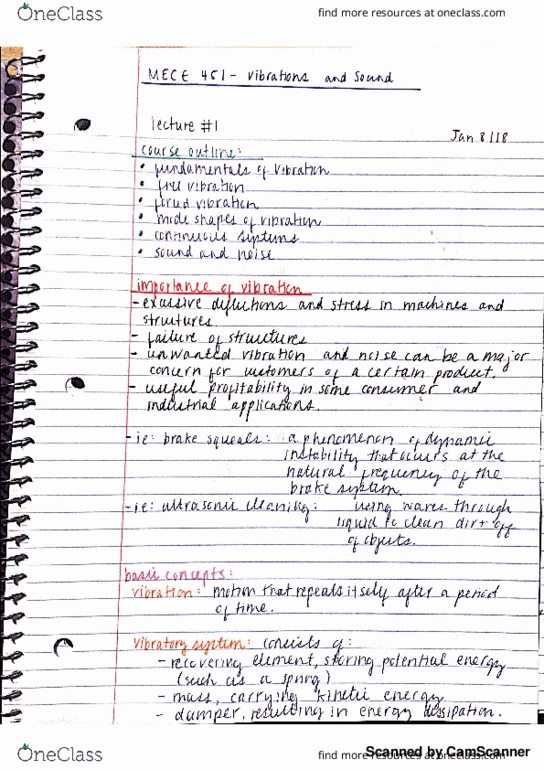 OneClass
find more resources at oneclass.com
MECE 451 - Vibrations and Sound
lecture #1
Jan 8/18
course outline:
• fundamentals of vibration
• free vibration
• forced vibration
• mode shapes of vibration
• continuous systems
• sound and noise
importance of vibration
- excessive deflections and stress in machines and
structures.
- failure of structures
- unwanted vibration and noise can be a major
concern for customers of a certain product.
- useful profitability in some consumer and
industrial applications.
- ie: brake squeals: a phenomenon of dynamic
instability that occurs at the
natural frequency of the
brake system.
- ie: ultrasonic cleaning: using waves through
liquid to clean dirt off
of objects.
basic concepts:
vibration: motion that repeats itself after a period
of time.
vibratory system: consists of:
- recovering element, storing potential energy
(such as a spring)
- mass, carrying kinetic energy
- damper, resulting in energy dissipation.
OneClass
find more resources at oneclass.com
Scanned by CamScanner